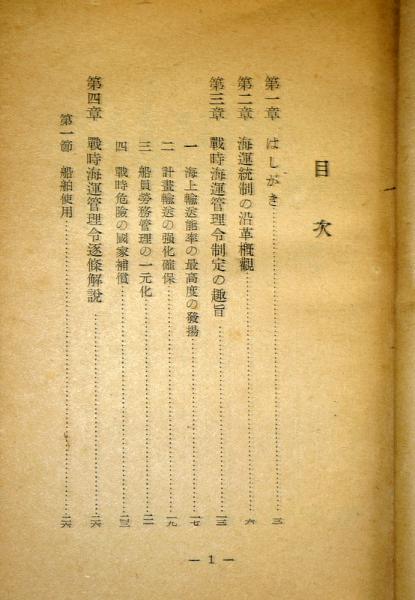 目次
第一章 はしがき……三
第二章 海運統制の沿革概觀……六
第三章 戰時海運管理令制定の趣旨……一三
一 海上輸送能率の最高度の發揚……一七
二 計畫輸送の强化確保……一九
三 船員勞務管理の一元化……二一
四 戰時危險の國家補償……二三
第四章 戰時海運管理令逐條解說……二六
第一節 船舶使用……二六
— 1 —